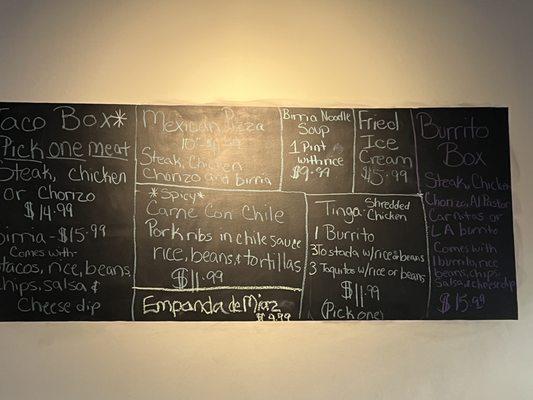 Taco Box*
Pick one meat
Steak, chicken
or Chorizo
$14.99
Birria - $15.99
Comes with
tacos, rice, beans,
chips, salsa &
Cheese dip
Mexican Pizza
Steak, Chicken
Chorizo and Birria
*Spicy*
Carne Con Chile
Pork ribs in chile sauce
rice, beans, & tortillas
$11.99
Empanda de Maiz
Birria Noodle
Soup
1 Pint
with rice
$9.99
Fried
Ice
Cream
$5.99
Tinga - Shredded Chicken
1 Burrito
3 Tostada w/rice & beans
3 Taquitos w/rice or beans
$11.99
(Pick one)
Burrito
Box
Steak, Chicken
Chorizo, Al Pastor
Carnitas or
LA burrito
Comes with
1 burrito, rice
beans, chips,
Salsa & cheese dip
$15.99